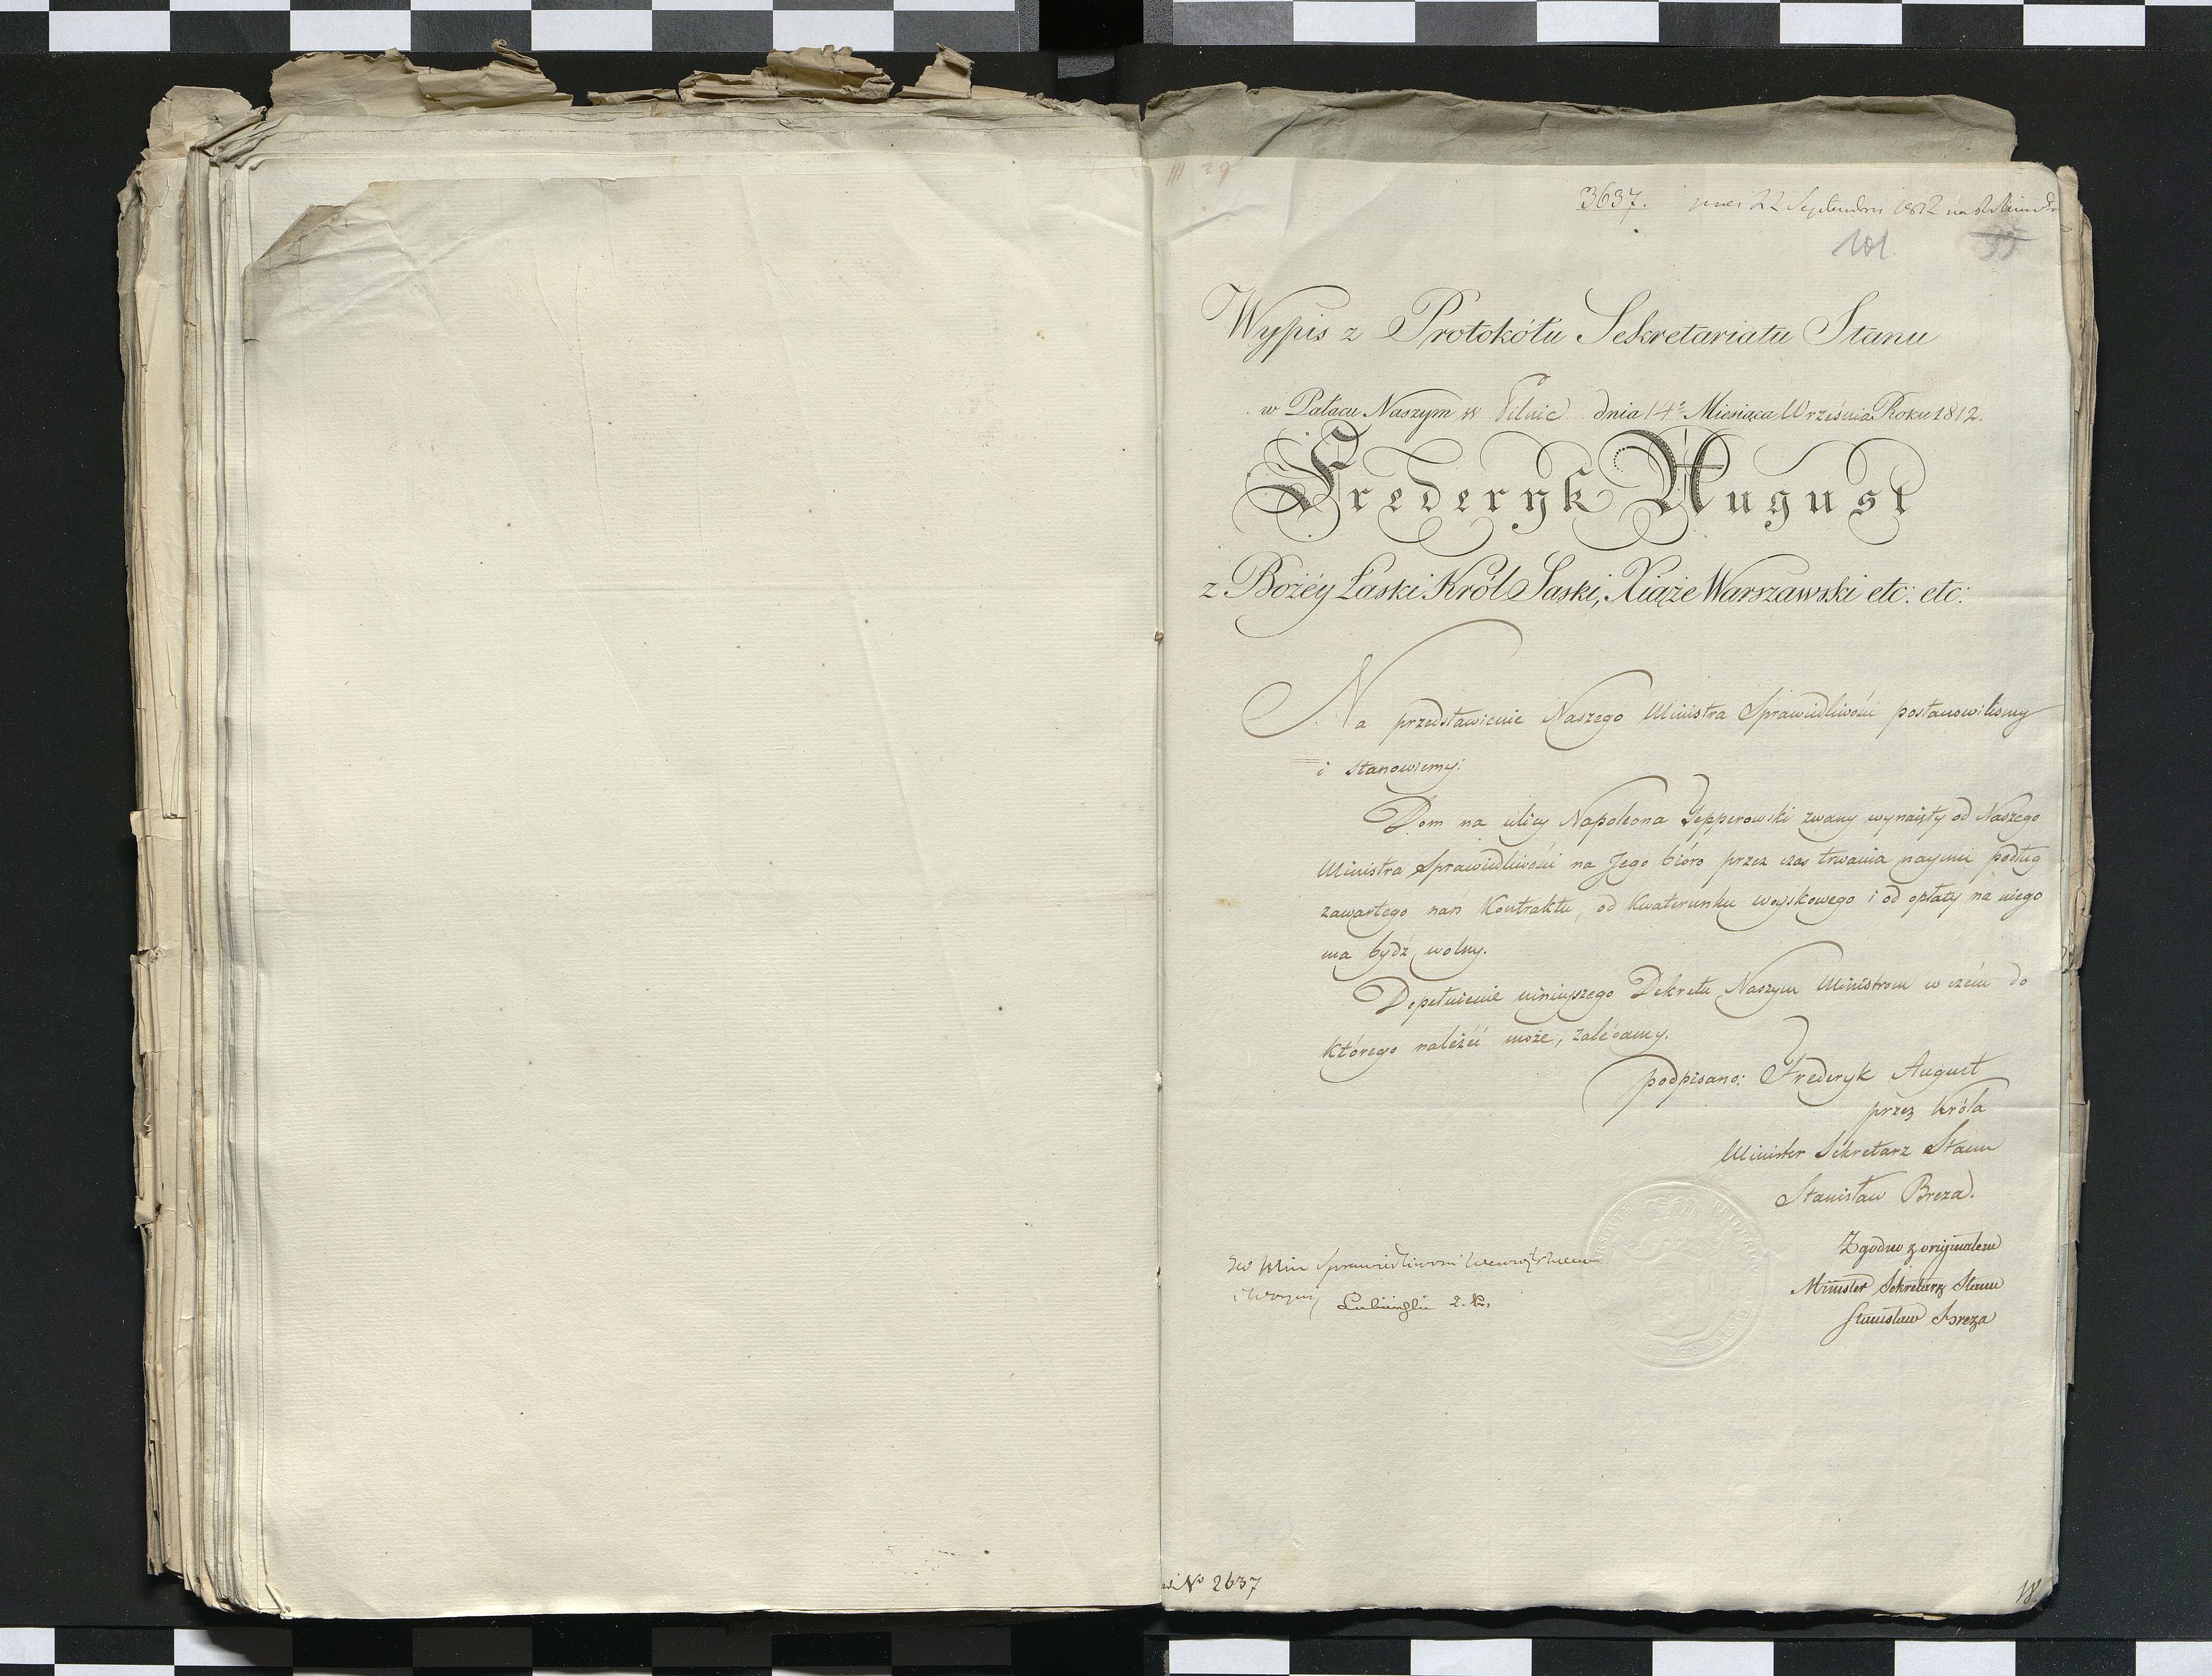 3637. 22 Septembris 1812
101
Wypis z Protokółu Sekretariatu Stanu
w Pałacu Naszym w Pilnic dnia 14º Miesiąca Września Roku 1812.
Frederyk August
z Bożéy Łaski Król Saski, Xiąże Warszawski etc: etc:
Na przedstawienie Naszego Ministra Sprawiedliwości postanowiliśmy
i stanowiemy:
Dom na ulicy Napoleona Tepperowski zwany wynaięty od Naszego
Ministra Sprawiedliwości na Jego bióro przez czas trwania naymu podług
zawartego nań Kontraktu, od Kwaterunku woyskowego i od opłaty na niego
ma bydź wolny.
Dopełnienie ninieyszego Dekretu Naszym Ministrom w czém do
którego należéć może, zalécamy.
podpisano: Frederyk August
przez Króla
Minister Sekretarz Stanu
Stanisław Breza.
Zgodno z oryginałem
Minister Sekretarz Stanu
Stanisław Breza
Do Min Sprawiedliwości
Lubiński
ad Nº 2637